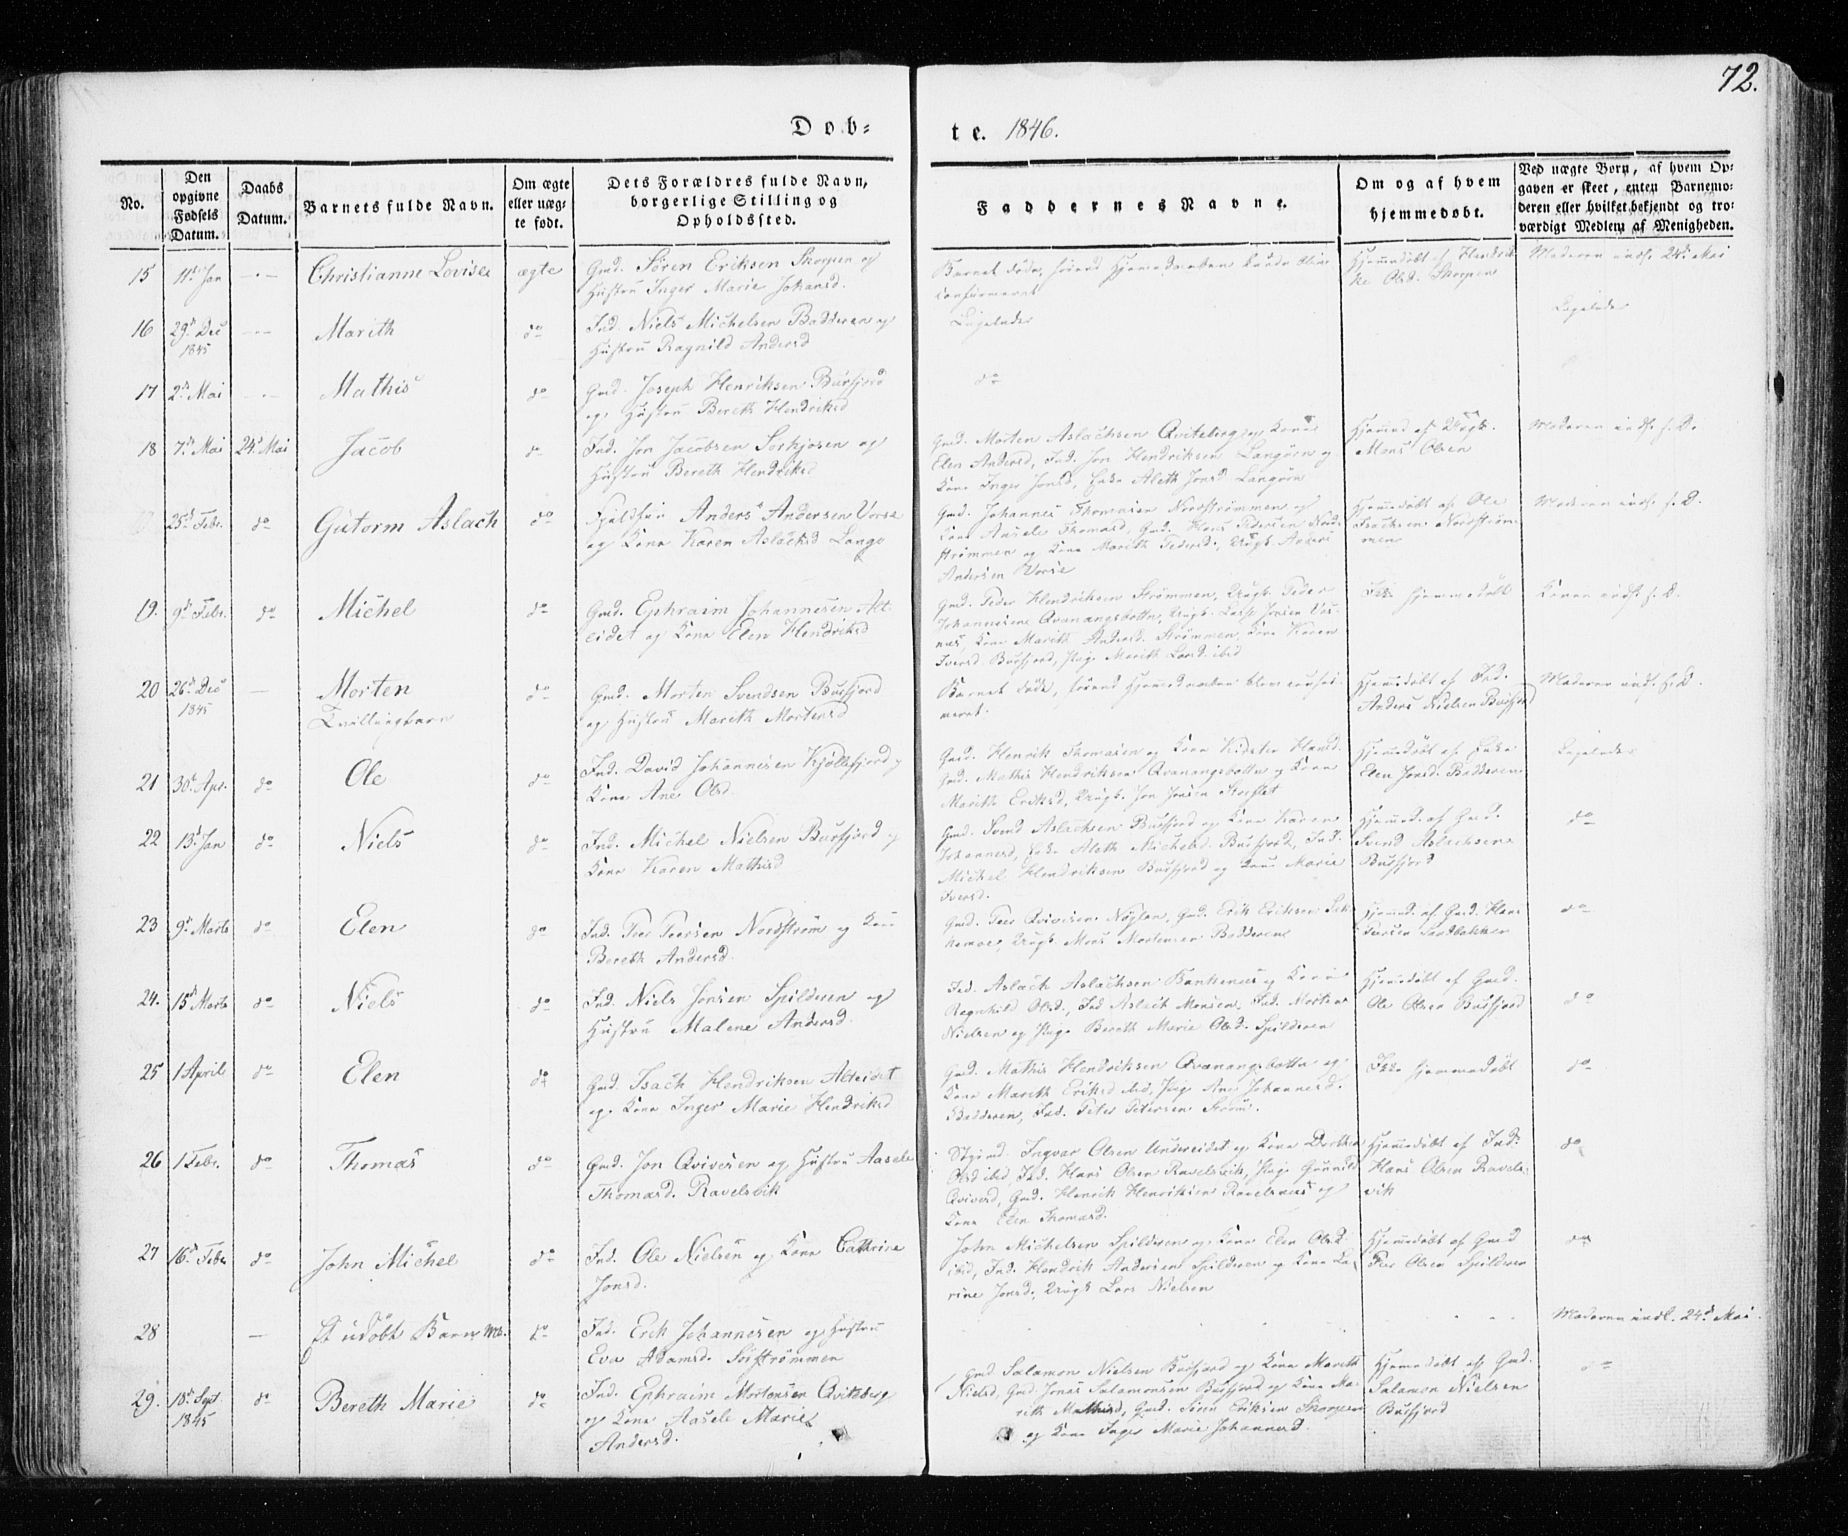 72.
Dob-
te. 1846.
No.
Den opgivne Fødsels Datum.
Daabs Datum.
Barnets fulde Navn.
Om ægte eller uægte født.
Dets Forældres fulde Navn, borgerlige Stilling og Opholdssted.
Faddernes Navne.
Om og af hvem hjemmedøbt.
Ved uægte Børn, af hvem Opgaven er skeet, enten Barnemoderen eller hvilket bekjendt og troværdigt Medlem af Menigheden.
15 11te Jan Christianne Lovise ægte Gmd. Søren Eriksen Skorpen og
Hustru Inger Marie Johansd.
Hjemmedøbt af Hendrik-
ke Olsd. Skorpen
Moderen indl. 24d Mai
16 29d Dec 1845 Marith do Ind. Niels Michelsen Badderen og
Hustru Ragnild Andersd
Ligeledes
Ligeledes
17 2d Mai Mathis do Gmd. Joseph Henriksen Burfjord
og Hustru Bereth Hendriksd
do
18 7d Mai 24d Mai Jacob do Ind. Jon Jacobsen Sørkjosen og
Hustru Bereth Hendriksd
Gmd. Morten Aslachsen Qviteberg og Kone
Elen Andersd, Ind. Jon Hendriksen Langøren og
Kone Inger Jonsd, Enke Aleth Jonsd Langøren
Hjemmd af Ungk.
Mons Olsen
Moderen indl. s. D.
25d Febr. do Gutorm Aslach do Fjeldfin Anders Andersen Vorse
og Kone Karen Aslachsd Lango
Gmd. Johannes Thomasen Nordstrømmen og
Kone Aasele Thomasd, Gmd. Hans Pedersen Nord-
strømmen og Kone Marith Pedersd, Ungk. Anders
Andersen Vorse
Hjemmedøbt af Ole
Isachsen Nordstrøm-
men
Moderen indl. s. D.
19. 9d Febr. do Michel do Gmd. Ephraim Johannesen Alt-
eidet og Kone Elen Hendriksd
Gmd. Peder Hendriksen Strømmen, Ungk. Peder
Johannesen Qvanangsbotten, Ungk.
Kone Marith Andersd. Strømmen, Kone Karen
Iversd. Burfjord, Pige Marith Larsd. ibid
Ikke hjemmedøbt
Konen indl. s. D.
20 26d Dec 1845 Morten do Gmd. Morten Svendsen Burfjord
Tvillingbarn og Hustru Marith Mortensd
Hjemmedøbt af Ind.
Anders Nielsen Burfjord
Moderen indl. s. D.
21 30d Apr. do Ole do Ind. David Johannesen Kjøllefjord og
Kone Ane Olsd.
Gmd. Henrik Thomasen og Kone Kirsten Hansd.
Gmd. Mathis Hendriksen Qvanangsbotten og Kone
Marith Eriksd, Ungk. Jon Jonsen Storslet
Hjemmedøbt af Enke
Elen Jonsd. Badderen
Ligeledes
22 13d Jan do Niels do Ind. Michel Nielsen Burfjord og
Kone Karen Mathisd
Gmd. Svend Aslachsen Burfjord og Kone Karen
Johannesd, Enke Aleth Michelsd. Burfjord, Ind.
Michel Hendriksen Burfjord og Kone Marie
Iversd.
Hjemmed. af Gmd.
Svend Aslachsen
Burfjord
do
23 9d Marts do Elen do Ind. Peer Peersen Nordstrøm og Kone
Bereth Andersd.
Gmd. Peer Qvivesen Nøglen, Gmd. Erik Eriksen
Ungk. Mons Mortensen Badderen
Hjemmed. af Gmd. Hans
do
24. 15d Marts do Niels do Ind. Niels Jonsen Spilderen og
Hustru Malene Andersd.
Ind. Aslach Aslachsen Bankenæs og Kone
Ragnhild Olsd., Ind Aslach Monsen, Ind. Morten
Nielsen og Pige Bereth Marie Olsd. Spilderen
Hjemmedøbt af Gmd.
Ole Olsen Burfjord
do
25 1 April do Elen do Gmd. Isach Hendriksen Alteidet
og Kone Inger Marie Hendriksd
Gmd. Mathis Hendriksen Qvanangsbotten og
Kone Marith Eriksd ibid, Pige Ane Johannesd.
Badderen, Ind. Peter Petersen Strøm.
Ikke hjemmedøbt
do
26 1 Febr. do Thomas do Gmd. Jon Qvivesen og Hustru Aasele
Thomasd. Ravelsvik
Ingvar Olsen Undereidet og Kone Dorthea
Olsd ibid, Ind. Hans Olsen Ravelsvik, Pige Gunnild
Qvivesd, Gmd. Henrik Henriksen Ravelsnæs og
Kone Elen Thomasd.
Hjemmedøbt af Ind.
Hans Olsen Ravels-
vik
do
27 16d Febr do John Michel do Ind. Ole Nielsen og Kone Cathrine
Jonsd.
John Michelsen Spilderen og Kone Elen Olsd.
ibid, Ind. Hendrik Andersen Spilderen og Kone Ca-
rine Jonsd, Ungk Lars Nielsen
Hjemmedøbt af Gmd
Peer Olsen Spilderen
do
28 Et udøbt Barn do Ind. Erik Johannesen og Hustru
Eva Adamsd. Sørstrømmen
Moderen indl. 24d Mai.
29. 18d Sept 1845 do Bereth Marie do Ind. Ephraim Mortensen Qviteberg
og Kone Aasele Marie
Andersd.
Gmd Salamon Nielsen Burfjord og Kone Marith
Nielsd, Gmd. Jonas Salamonsen Burfjord og Kone Ma-
rith Mathisd, Gmd. Søren Eriksen Skorpen
og Kone Inger Marie Johannesd.
Hjemmedøbt af Gmd.
Salamon Nielsen
Burfjord
do